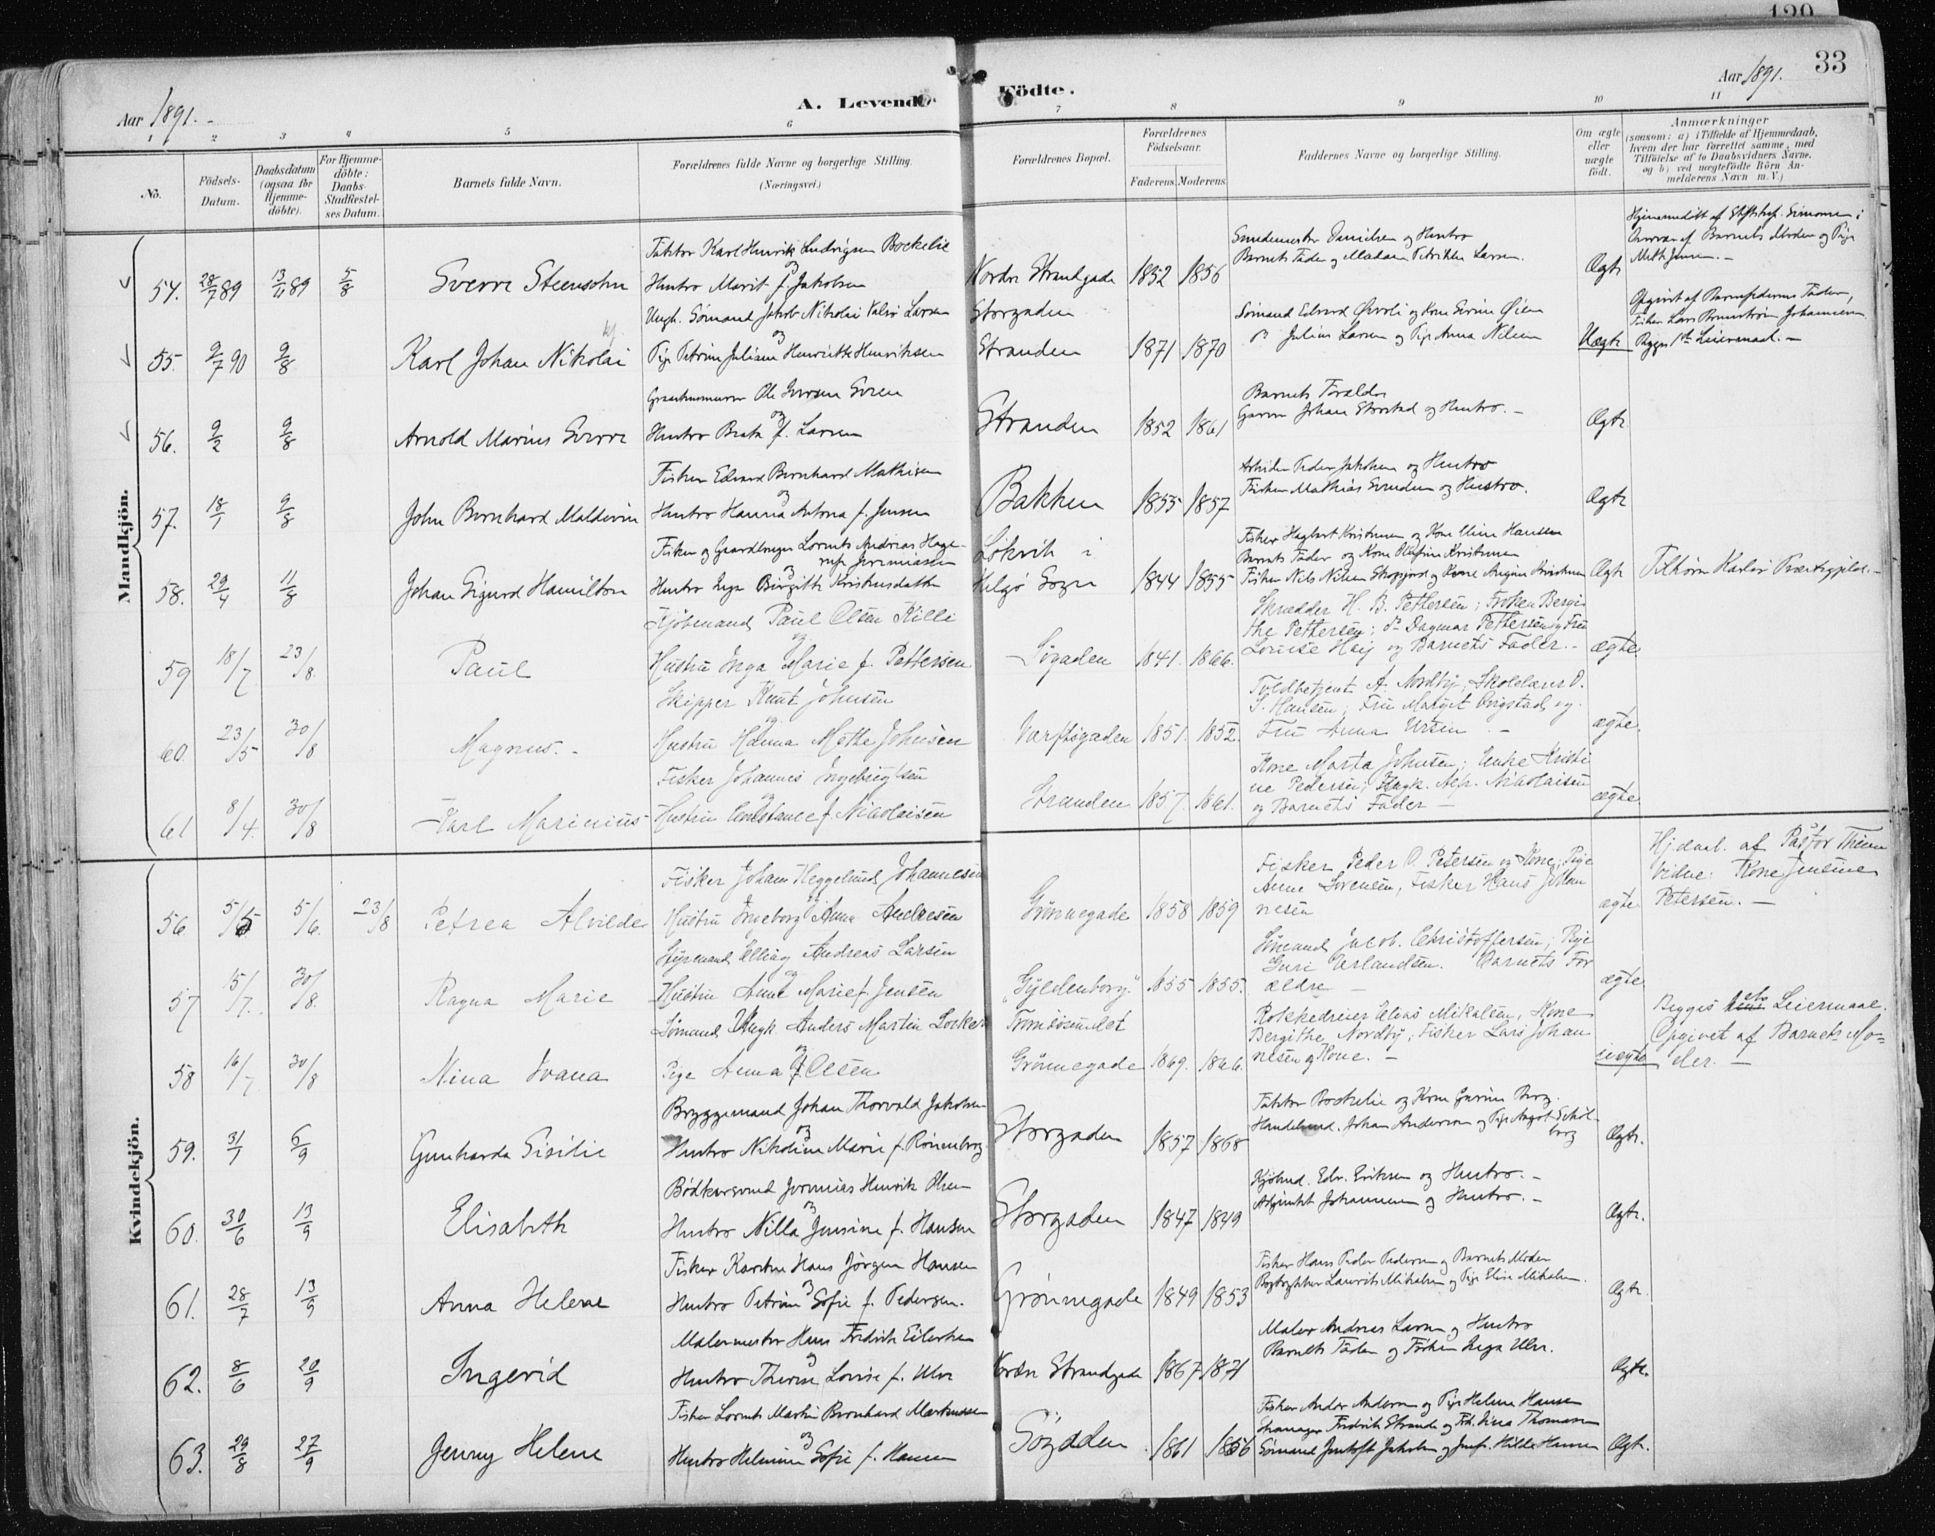 120
33
Aar 1891.
A. Levende Födte.
Aar 1891.
1 2 3 4 5 6 7 8 9 10 11
No.
Födsels-Datum.
Daabsdatum (ogsaa for Hjemme-döbte).
For Hjemme-döbte: Daabs-Stadfæstel-ses Datum.
Barnets fulde Navn.
Forældrenes fulde Navne og borgerlige Stilling. (Næringsvei.)
Forældrenes Bopæl.
Forældrenes Födselsaar.
Faderens. Moderens.
Faddernes Navne og borgerlige Stilling.
Om ægte eller uægte födt.
Anmærkninger
(saasom: a) i Tilfælde af Hjemmedaab,
hvem der har forrettet samme, med
Tilföielse af to Daabsvidners Navne,
og b) ved uægtefödte Börn An-
melderens Navn m. V.)
Mandkjön.
54. 28/7 89 13/11 89 5/8 Sverre Steensohn
Faktor Karl Henrik Ludvigsen Bockelie
og
Hustro Marit f. Jakobsen
Nordre Strandgade 1852 1856
Smedemester Danielsen og Hustro
Barnets Fader og Madam Larsen.
Ægte
Hjemmedöbt af Simonsen i
Nærvær af Barnets Moder og Pige
55. 9/7 90 9/8 Karl Johan Nikolai
Ungk. Sömand Jakob Nikolai Larsen
og
Pige Petrine Juliane Henriette Henriksen
Storgaden
Stranden 1871 1870
Sömand Edvard og Kone
Julius Larsen og Pige Anna Nilsen
Uægte
Opgivet af Barnefaderens Fader,
Fisker Lars Johannesen
Begges 1ste Leiermaal. -
56. 9/2 9/8 Arnold Marius Sverre
Ole Iversen
og
Hustro Beate f. Larsen
Stranden 1852 1861
Barnets Forældre
Garver Johan og Hustro. -
Ægte
57. 18/1 9/8 John Bernhard Maldevin
Fisker Edvard Bernhard Mathisen
og
Hustro Hanna Antona f. Jensen
Bakken 1855 1857
Arbeider Peder Jakobsen og Hustro
Fisker Mathias Svendsen og Hustro.
Ægte
58. 29/4 11/8 Johan Sigurd Hamilton
Fisker og Gaardbruger Lorents Andreas Hage-
rup Jeremiassen
og
Hustro Inga Birgitte Kristensdatter
Lökvik i
Helgö Sogn 1844 1855
Fisker Hagbart Kristensen og Kone Hansen
Barnets Fader og Kone Kristensen
Fisker Nils Nilsen og Kone
Ægte
Tilhörer Karlsö Præstegjeld. -
59 18/7 23/8 Paul
Kjöbmand Paul Olsen Killi
og
Hustru Inga Marie f. Pettersen
Sögaden 1841. 1866.
Skrædder H. B. Pettersen; Fröken Bergi
the Pettersen; do Dagmar Pettersen og Fru
Louise Høij og Barnets Fader. -
ægte
60. 23/5 30/8 Magnus. -
Skipper Knut Johnsen
og
Hustru Hanna Methe Johnsen
Varftsgaden 1851. 1852.
Toldbetjent A. Nordby, Skolelærer O.
S. Hansen; Fru Marget Ongstad og
Fru Anna Ursin. -
ægte.
61 8/4. 30/8 Karl Marinius
Fisker Johannes Ingebrigtsen
og
Hustru Constance f. Nikolaisen
Stranden 1857. 1861.
Kone Marta Johnsen; Enke Kristi
ne Pedersen; Ungk. Alfr. Nikolaisen
og Barnets Fader -
ægte
Kvindekjön.
56 5/5 5/6. 23/8 Petrea Alvilde
Fisker Johan Heggelund Johannesen
Hustru Ingeborg Anna Andresen
Grönnegade 1858 1859
Fisker Peder O. Petersen og Kone; Pige
Anne Sörensen, Fisker Hans Johan
nesen
ægte
Hjdaab. af Pastor Thiem
Vidne: Kone Jensine
Petersen. -
57 15/7. 30/8. Ragna Marie
Hyremand Elling Andreas Larsen
og
Hustru Anne Marie f. Jensen
"Gyldenborg" 1855 1855.
Sömand Jacob Christoffersen; Pige
Guri Erlandsen. Barnets For
ældre -
ægte
58 16/7 30/8 Nina Ivana
Sömand Ungk. Anders Martin
og
Pige Anna f. Olsen
Tromsösundet
Grönnegade 1869. 1866.
Rokkedreier Elias Mikalsen, Kone
Bergithe Nordby, Fisker Lars Johan
nesen og Kone. -
uægte
Begges Leiermaal.
Opgivet af Barnets Mo=
der. -
59. 31/1 6/9 Gunharda Sisilie
Bryggemand Johan Thorvald Jakobsen
og
Hustro Nikoline Marie f. Rönneberg
Storgaden 1857 1868
Faktor Bockelie og Kone
Handelsmd. Johan Andersen og Pige
Ægte.
60. 30/6 13/9 Elisabeth
Bödkersvend Jeremias Henrik Olsen
og
Hustro Nilla Jensine f. Hansen
Storgaden 1847 1849
Kjöbmd. Edv. Eriksen og Hustro. -
Johannesen og Hustro. -
Ægte.
61. 28/7 13/9 Anna Helene
Fisker Karsten Hans Jörgen Hansen
og
Hustro Petrine Sofie f. Pedersen.
Grönnegade 1849 1853
Fisker Hans Peder Pedersen og Barnets Moder
Bogtrykker Laurits Mikalsen og Pige Elise Mikalsen.
Ægte.
62. 8/6 20/9 Ingerid
Malermester Hans Fredrik Eilertsen
og
Hustro Therese Lovise f. Ulve
Nordre Strandgade 1867 1871
Maler Andreas Larsen og Hustro
Barnets Fader og Fröken Inga Ulve.
Ægte.
63. 29/8 27/9 Jenny Helene
Fisker Lorents Martin Bernhard Martinussen
og
Hustro Helmine Sofie f. Hansen
Sögaden 1861 1856
Fisker Andor Andersen og Pige Helene Hansen
Fredrik Strande og Frk. Lina Thomasen
Sömand Jakobsen og Jomf. Hilda Hansen
Ægte.